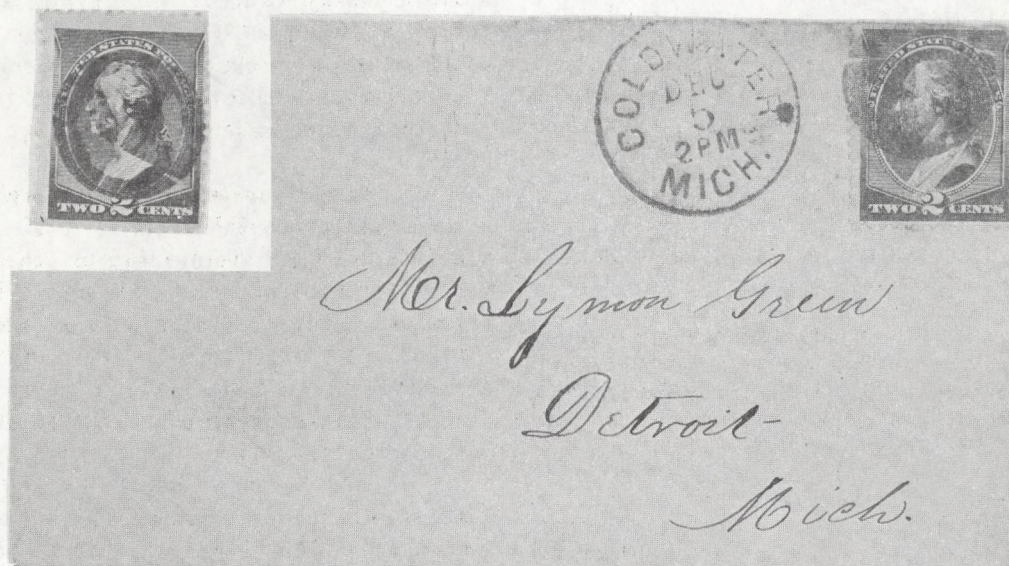 UNITED STATES POSTAGE
TWO 2 CENTS
COLDWATER
DEC
5
2PM
MICH.
UNITED STATES POSTAGE
TWO 2 CENTS
Mr. Lymon Green
Detroit
Mich.